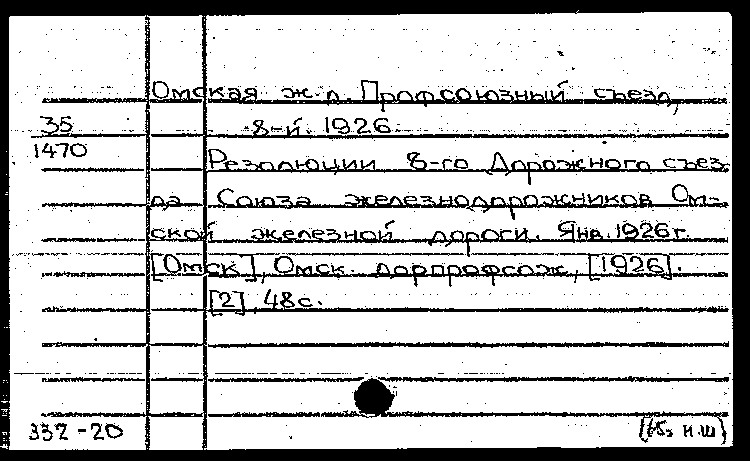 Омская ж.д. Профсоюзный съезд,
35
8-й. 1926.
1470
Резолюции 8-го Дорожного съез-
да Союза железнодорожников Ом-
ской железной дороги. Янв. 1926 г.
[Омск], Омск. дорпрофсож, [1926].
[2], 48 с.
332-20
н.ш)